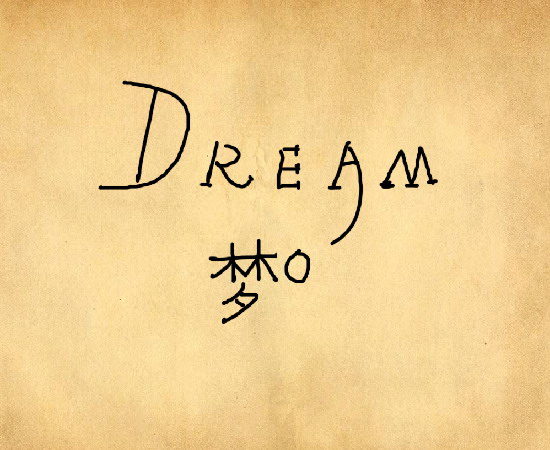 DREAM
梦O